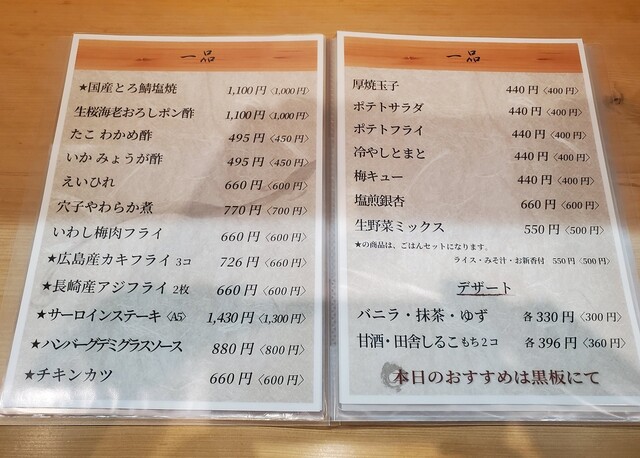 一品
★国産とろ鯖塩焼 1,100円〈1,000円〉
生桜海老おろしポン酢 1,100円〈1,000円〉
たこ わかめ酢 495円〈450円〉
いか みょうが酢 495円〈450円〉
えいひれ 660円〈600円〉
穴子やわらか煮 770円〈700円〉
いわし梅肉フライ 660円〈600円〉
★広島産カキフライ 3コ 726円〈660円〉
★長崎産アジフライ 2枚 660円〈600円〉
★サーロインステーキ〈A5〉 1,430円〈1,300円〉
★ハンバーグデミグラスソース 880円〈800円〉
★チキンカツ 660円〈600円〉
一品
厚焼玉子 440円〈400円〉
ポテトサラダ 440円〈400円〉
ポテトフライ 440円〈400円〉
冷やしとまと 440円〈400円〉
梅キュー 440円〈400円〉
塩煎銀杏 660円〈600円〉
生野菜ミックス 550円〈500円〉
★の商品は、ごはんセットになります。
ライス・みそ汁・お新香付 550円〈500円〉
デザート
バニラ・抹茶・ゆず 各330円〈300円〉
甘酒・田舎しるこ もち2コ 各396円〈360円〉
本日のおすすめは黒板にて